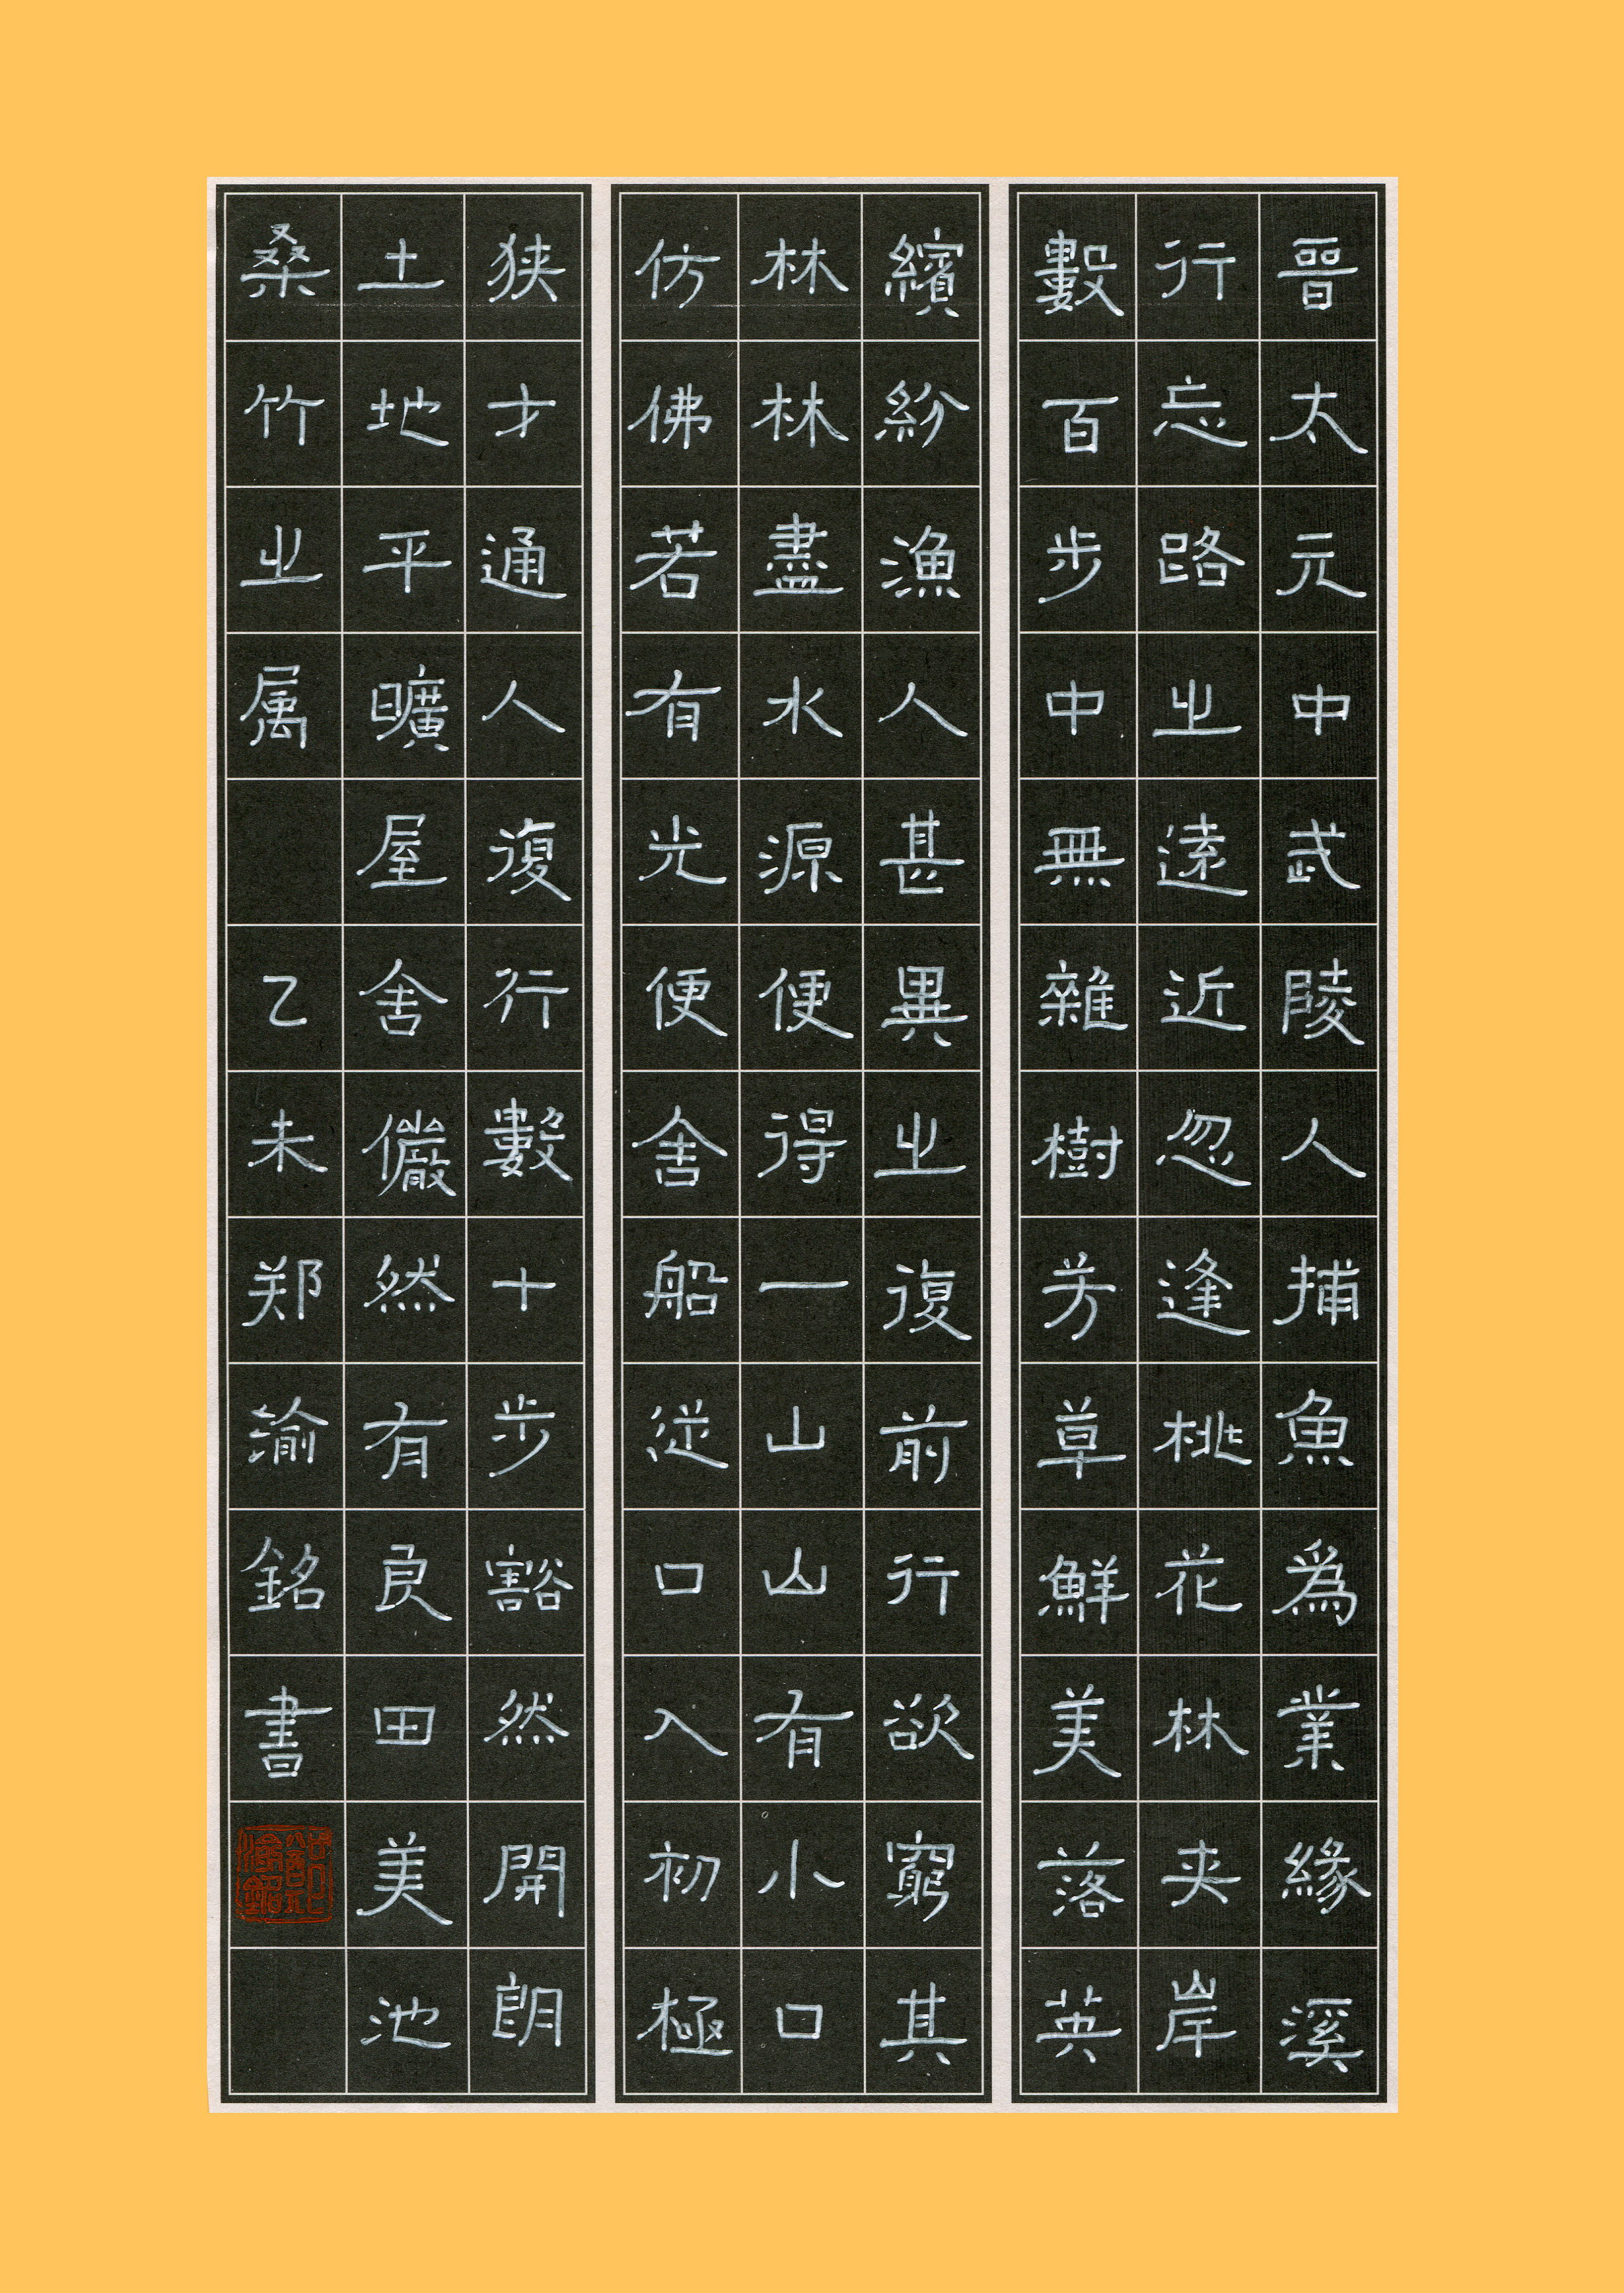 晉太元中武陵人捕魚爲業緣溪
行忘路之遠近忽逢桃花林夹岸
數百步中無雜樹芳草鮮美落英
繽紛漁人甚異之復前行欲窮其
林林盡水源便得一山山有小口
仿佛若有光便舍船從口入初極
狭才通人復行數十步豁然開朗
土地平曠屋舍儼然有良田美池
桑竹之属 乙未郑渝銘書